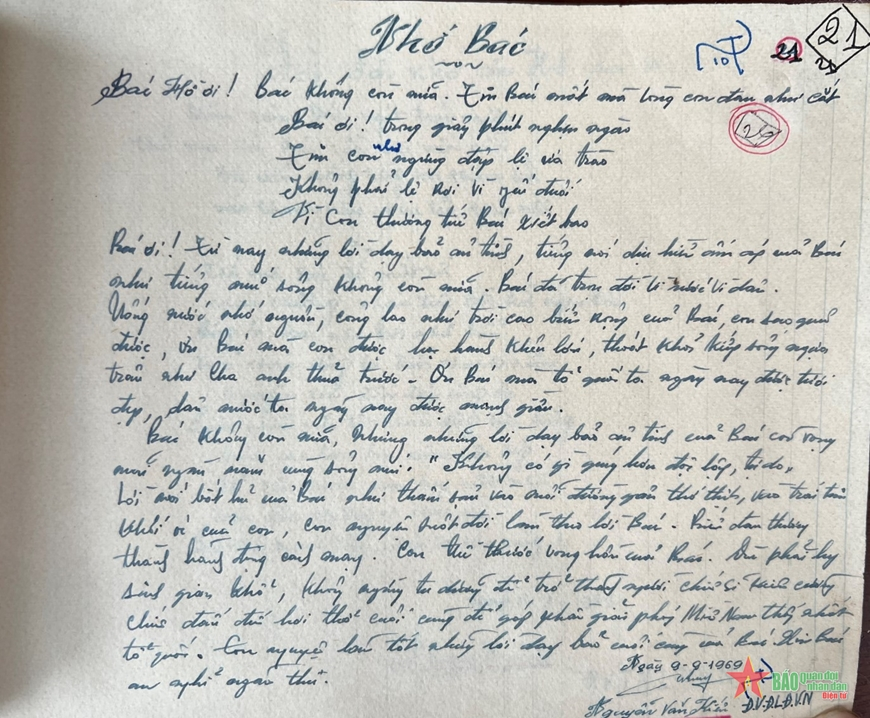 Nhớ Bác
21
21
10
29
Bác Hồ ơi! Bác không còn nữa. Tin Bác mất mà lòng con đau như cắt
Bác ơi! trong giây phút nghẹn ngào
Tim con như ngừng đập lệ ứa trào
Không phải lệ rơi vì yếu đuối
Vì con thương tiếc Bác xiết bao
Bác ơi! Từ nay những lời dạy bảo ân tình, tiếng nói dịu hiền ấm áp của Bác
như tiếng núi sông không còn nữa. Bác đã trọn đời vì nước vì dân.
Uống nước nhớ nguồn, công lao như trời cao biển rộng của Bác, con sao quên
được, ơn Bác mà con được học hành khôn lớn, thoát khỏi kiếp sống ngựa
trâu như cha anh thuở trước - Ơn Bác mà tổ quốc ta ngày nay được tươi
đẹp, dân nước ta ngày nay được mạnh giàu.
Bác không còn nữa, nhưng những lời dạy bảo ân tình của Bác còn vọng
mãi ngàn năm cùng sông núi. "Không có gì quý hơn độc lập, tự do"
Lời nói bất hủ của Bác như thấm sâu vào mỗi đường gân thớ thịt, vào trái tim
khối óc của con, con nguyện suốt đời làm theo lời Bác. Biến đau thương
thành hành động cách mạng. Con thề trước vong hồn của Bác. Dù phải hy
sinh gian khổ, không ngừng tu dưỡng để trở thành người chiến sĩ kiên cường
chiến đấu đến hơi thở cuối cùng để góp phần giải phóng Miền Nam thống nhất
tổ quốc. Con nguyện làm tốt những lời dạy bảo cuối cùng của Bác. Xin Bác
an nghỉ ngàn thu.
Ngày 9-9-1969
Nguyễn Văn
Đ.V.Đ.L.Đ.V.N
BÁO Quân đội nhân dân Điện tử